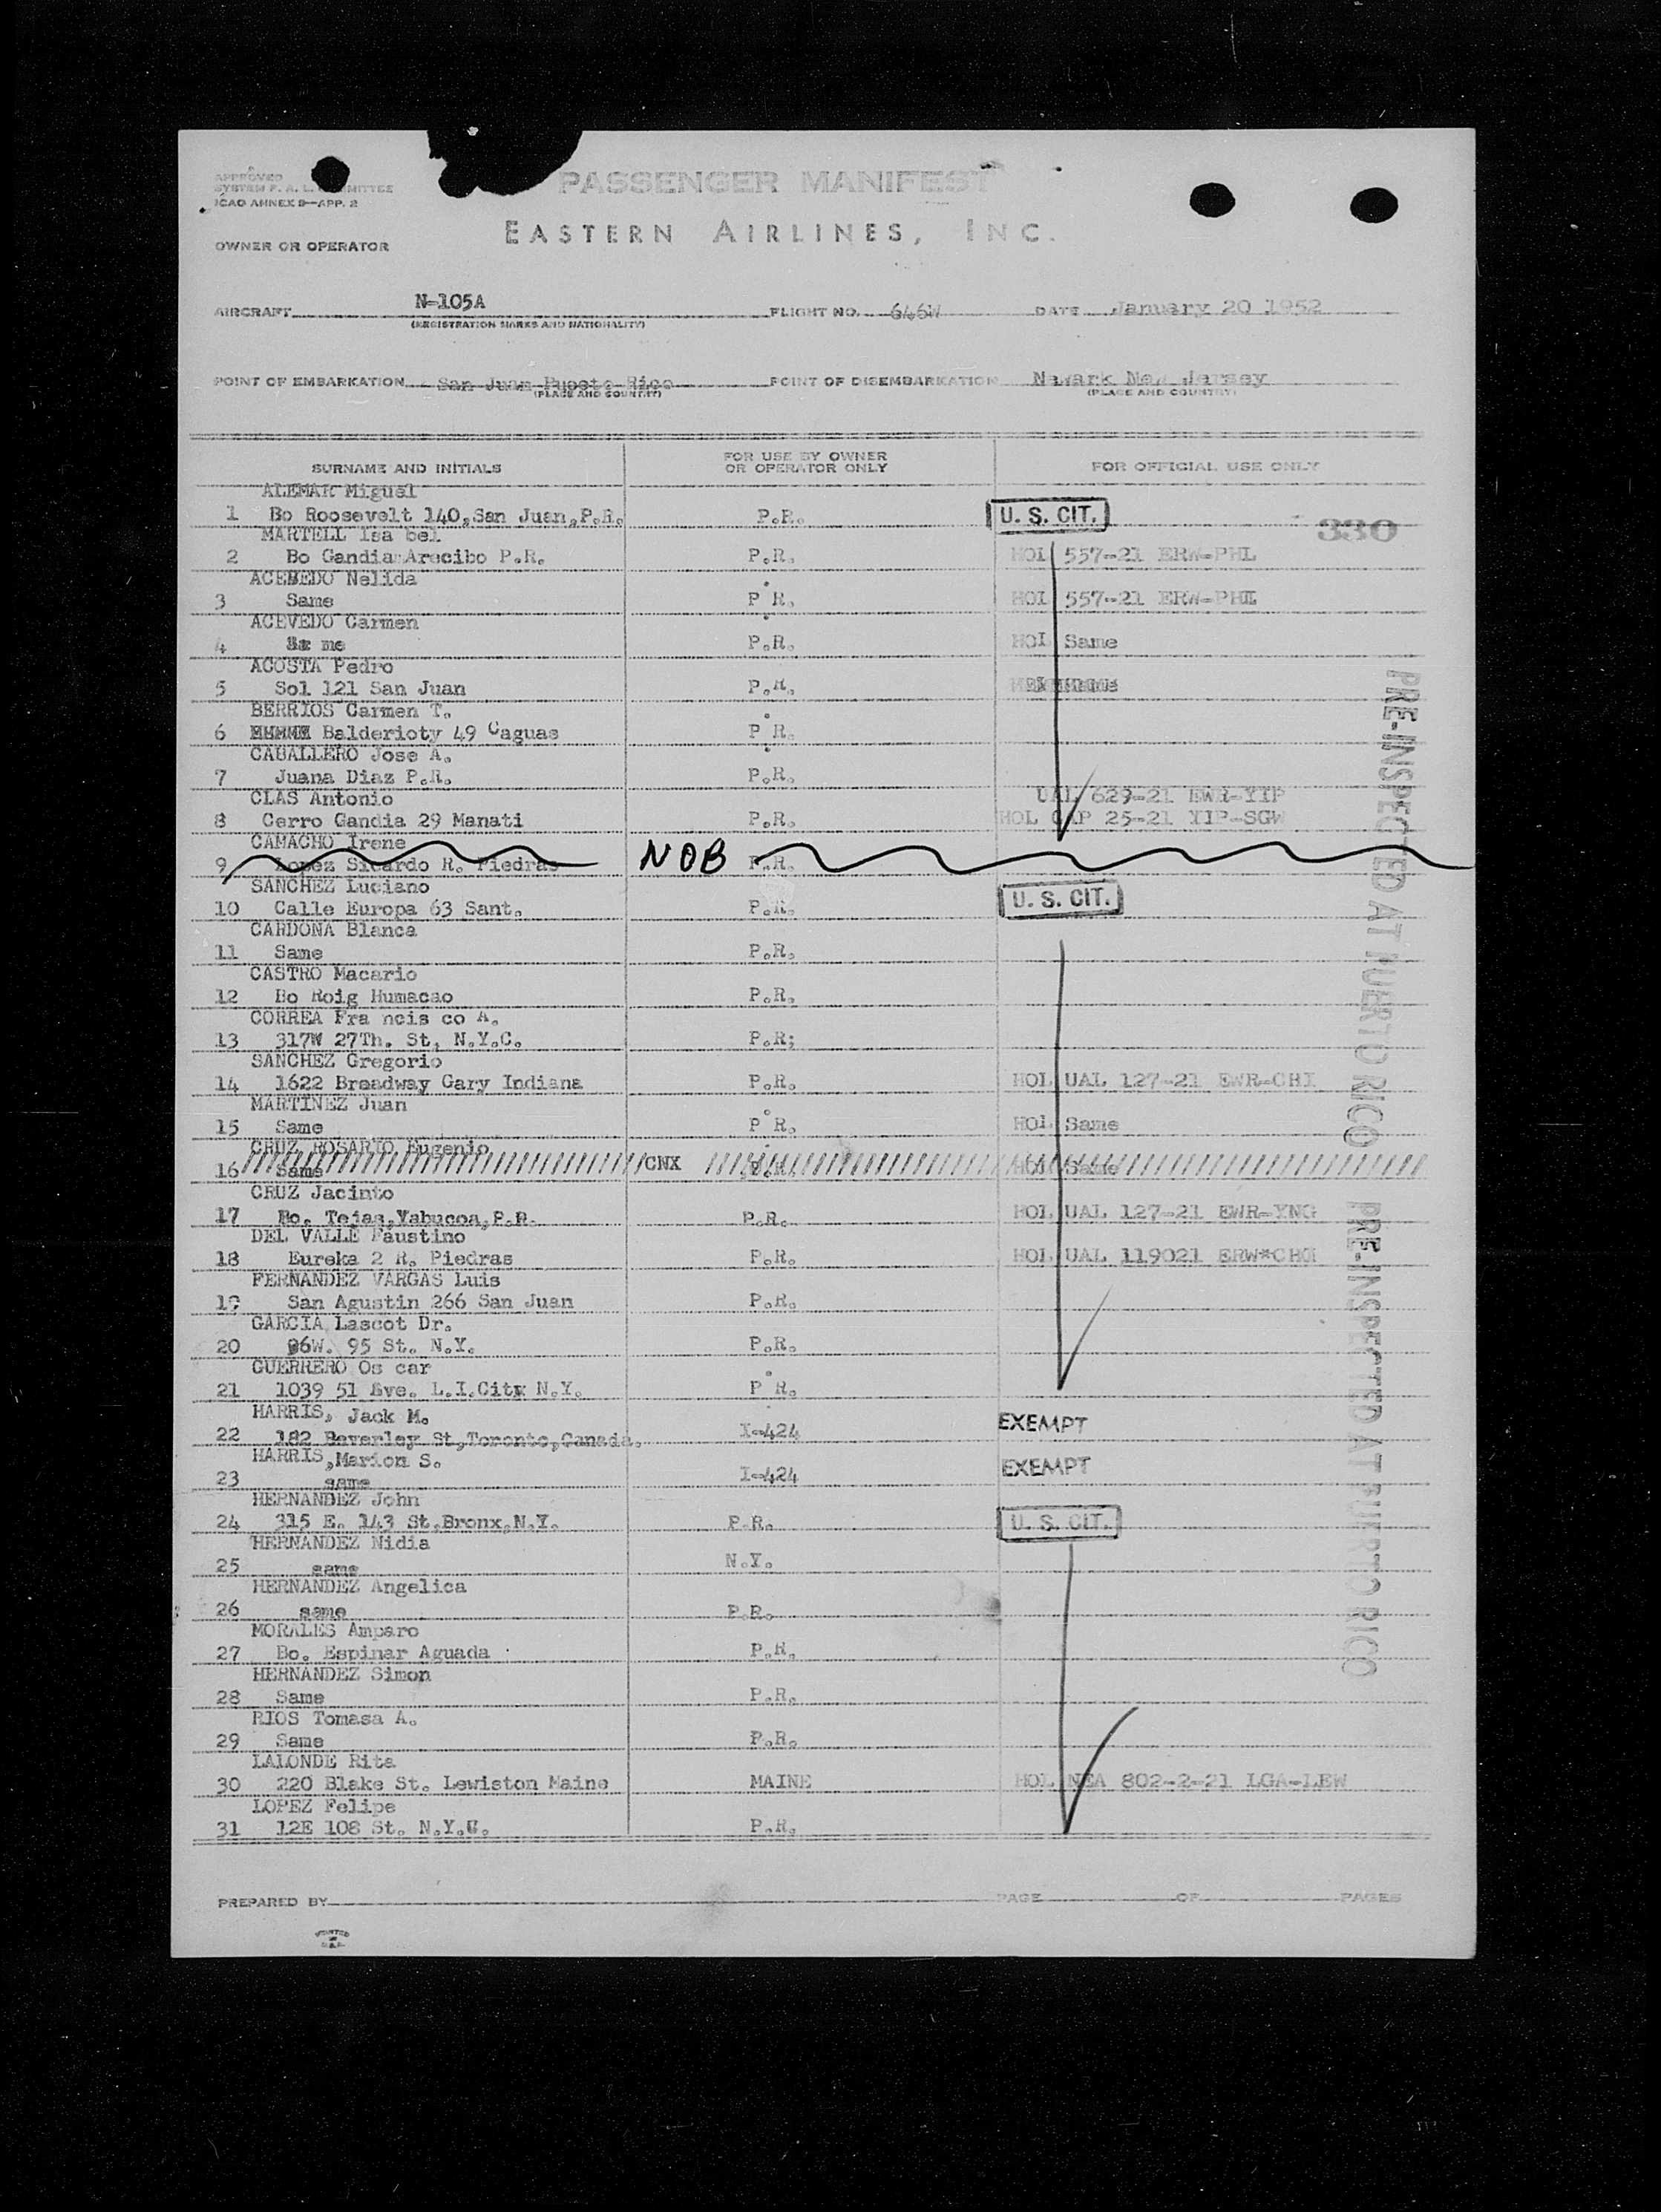 APPROVED
SYSTEM F. A. L. COMMITTEE
ICAO ANNEX 9—APP. 2
PASSENGER MANIFEST
EASTERN AIRLINES, INC.
OWNER OR OPERATOR
AIRCRAFT N-105A FLIGHT NO. 646W DATE January 20 1952
(REGISTRATION MARKS AND NATIONALITY)
POINT OF EMBARKATION San Juan Pupeto Rico POINT OF DISEMBARKATION Newark New Jersey
(PLACE AND COUNTRY) (PLACE AND COUNTRY)
SURNAME AND INITIALS FOR USE BY OWNER OR OPERATOR ONLY FOR OFFICIAL USE ONLY
ALEMAR Miguel
1 Bo Roosevelt 140,San Juan,P.R. P.R. U. S. CIT. 330
MARTELL Isa bel
2 Bo Gandia Arecibo P.R. P.R. HOL 557-21 ERW-PHL
ACEBEDO Nelida
3 Same P.R. HOL 557-21 ERW-PHL
ACEVEDO Carmen
4 Sa me P.R. HOL Same
ACOSTA Pedro
5 Sol 121 San Juan P.R.
BERRIOS Carmen T.
6 Balderioty 49 Caguas P.R.
CABALLERO Jose A.
7 Juana Diaz P.R. P.R.
CLAS Antonio UAL 629-21 EWR-YIP
8 Cerro Gandia 29 Manati P.R. HOL CAP 25-21 YIP-SGW
CAMACHO Irene
9 Lopez Sicardo R. Piedras NOB P.R.
SANCHEZ Luciano
10 Calle Europa 63 Sant. P.R. U. S. CIT.
CARDONA Blanca
11 Same P.R.
CASTRO Macario
12 Bo Roig Humacao P.R.
CORREA Fra ncis co A.
13 317W 27Th. St, N.Y.C. P.R;
SANCHEZ Gregorio
14 1622 Broadway Gary Indiana P.R. HOL UAL 127-21 EWR-CHI
MARTINEZ Juan
15 Same P.R. HOL Same
CRUZ ROSARIO Eugenio
16 Same CNX P.R. HOL Same
CRUZ Jacinto
17 Bo. Tejas,Yabucoa,P.R. P.R. HOL UAL 127-21 EWR-YNG
DEL VALLE Faustino
18 Eureka 2 R. Piedras P.R. HOL UAL 119021 ERW*CHI
FERNANDEZ VARGAS Luis
19 San Agustin 266 San Juan P.R.
GARCIA Lascot Dr.
20 86W. 95 St. N.Y. P.R.
GUERRERO Os car
21 1039 51 Ave. L.I.City N.Y. P.R.
HARRIS, Jack M.
22 182 Beverley St,Toronto,Canada. I-424 EXEMPT
HARRIS,Marion S.
23 same I-424 EXEMPT
HERNANDEZ John
24 315 E. 143 St.Bronx,N.Y. P.R. U. S. CIT.
HERNANDEZ Nidia
25 same N.Y.
HERNANDEZ Angelica
26 same P.R.
MORALES Amparo
27 Bo. Espinar Aguada P.R.
HERNANDEZ Simon
28 Same P.R.
RIOS Tomasa A.
29 Same P.R.
LALONDE Rita
30 220 Blake St. Lewiston Maine MAINE HOL NEA 802-2-21 LGA-LEW
LOPEZ Felipe
31 12E 108 St. N.Y.C. P.R.
PRE-INSPECTED AT PUERTO RICO
PRE-INSPECTED AT PUERTO RICO
PREPARED BY PAGE OF PAGES
PRINTED
IN
U.S.A.